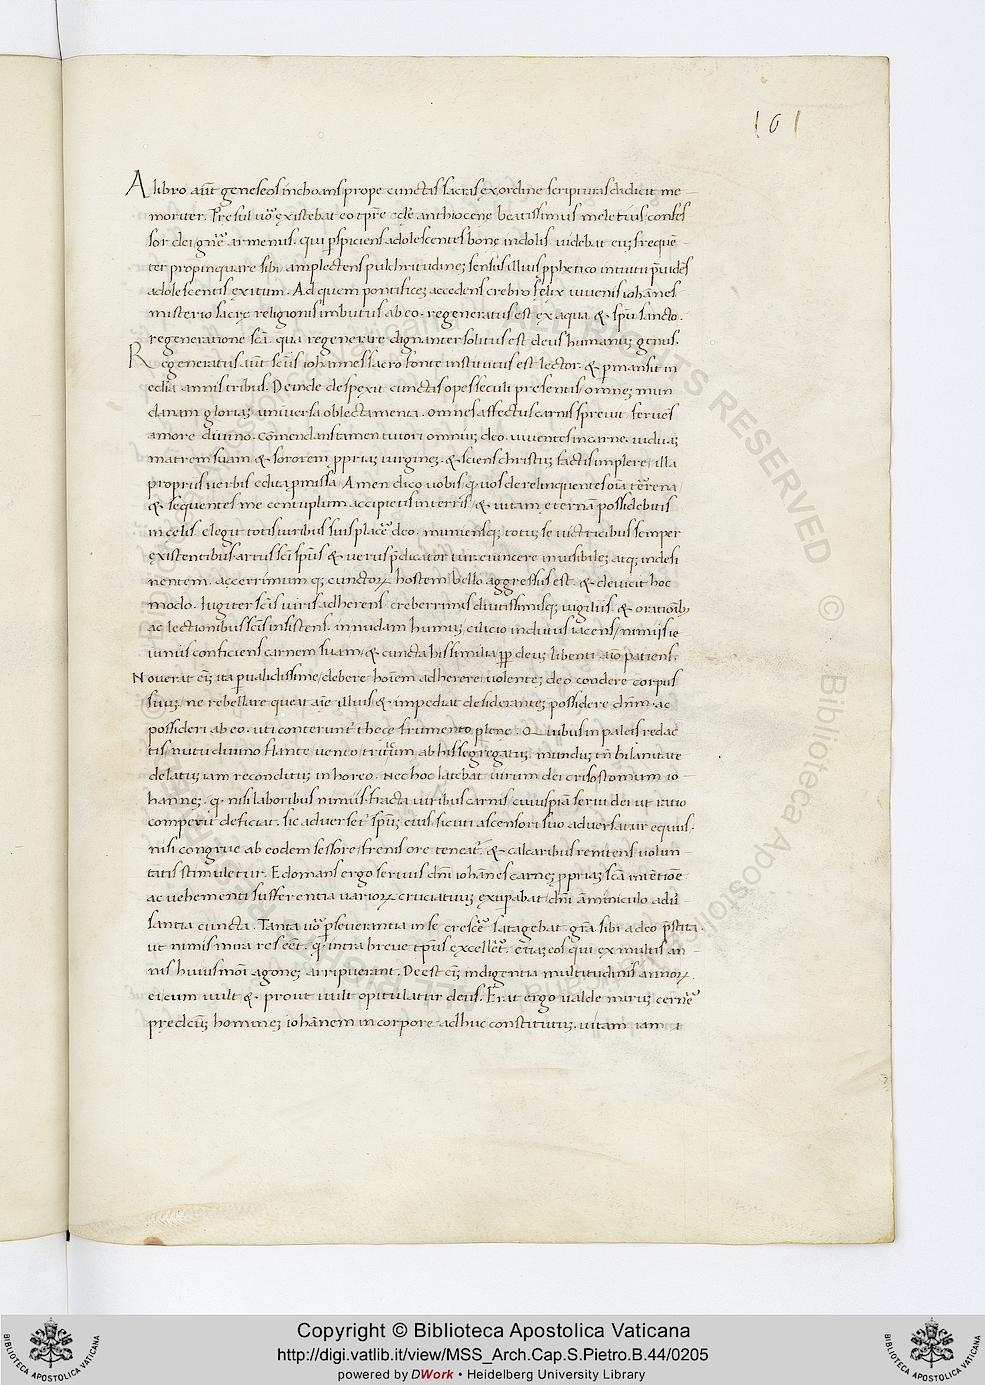 101
A libro aut̄ geneseos inchoans prope cunctas sacras ex ordine scripturas didicit me-
moriter. Presul ūo existebat eo tp̄re anthiocene beatissimus meletius confes
sor dei gn̄e armenus. qui pspiciens adolescentes bone indolis uidebat eū frequē-
ter propinquare sibi. amplectens pulchritudinē sensus illius pphetico intuitu p̄uidēs
adolescentis exitum. Ad quem pontificē accedens crebro felix iuuenis iohānes
misterio sacrę religionis imbutus ab eo. regeneratus est ex aqua & spū sancto.
regeneratione scā. qua regenerare dignanter solitus est deus humanū genus.
Regeneratus aut̄ scūs iohannes sacro fonte institutus est lector. & pmansit in
ędia annis tribus. Deinde despexit cunctas opes seculi presentis omnē mun
danam gloriā. uniuersa oblectamenta. omnes affectus carnis spreuit feruēs
amore diuino. Cōmendans tamen tutori omniū deo. uiuentes in carne. uiduā
matrem suam & sororem ppriā uirginē. & sciens christū factis implere illa
propriis uerbis edita pmissa. Amen dico uobis q̄ uos derelinquentes oīa terrena
& sequentes me centuplum accipietis in terris & uitam eternā possidebitis
in celis. elegit totis uiribus suis placere deo. muniensq; totū se uictricibus semper
existentibus artus scī sp̄us & uerus p̄dicator uir. euincere inuisibilē atq; indesi
nentem. accerrimum q; cunctoꝝ hostem bello aggressus est. & deuicit hoc
modo. Iugiter scīs uiris adherens creberrimis diutissimisq; uigiliis. & orationib;
ac lectionibus scīs insistens. in nudam humū cilicio indutus iacens nimiis ie
iuniis conficiens carnem suam. & cuncta his similia ppt deū libenti aīo patiens.
Nouerat eī ita pualidissime debere hoīem adherere uolentē deo condere corpus
suū. ne rebellare queat aīe illius & impediat desiderantē possidere dn̄m. ac
possideri ab eo. uti conteruntur thecę frumento plenę. Quibus in paleis redac
tis nutu diuino flante uento triticum ab his segregatū. mundū cū hilaritate
delatū iam reconditū in horeo. Nec hoc latebat uirum dei crisostomum io
hannē. q̄ nisi laboribus nimiis fracta uiribus carnis cuiuspiā serui dei ut ratio
comperit deficiat. sic aduersetur spūi eius sicuti ascensori suo aduersatur equus.
nisi congrue ab eodem sessore frenis ore teneat. & calcaribus renitens uolun-
tatis stimuletur. Edomans ergo seruus dn̄i iohānes carnē ppriā scā intētiōe
ac uehementi sufferentia uarioꝝ cruciatuū. exupabat dn̄i aminiculo adu
santia cuncta. Tanta ūo pseuerantia in se crescere satagebat. grā sibi a deo p̄stita.
ut nimis mira res eēt. q̄ intra breue tp̄us excelleret. etiā eos qui ex multis an-
nis huiusmōi agonē arripuerant. Deest eī indigentia multitudinis annoꝝ
ei cum uult & prout uult opitulatur deus. Erat ergo ualde mirū cernere
predcm̄ hominē iohānem in corpore adhuc constitutū. uitam iam
Copyright © Biblioteca Apostolica Vaticana
http://digi.vatlib.it/view/MSS_Arch.Cap.S.Pietro.B.44/0205
powered by DWork • Heidelberg University Library